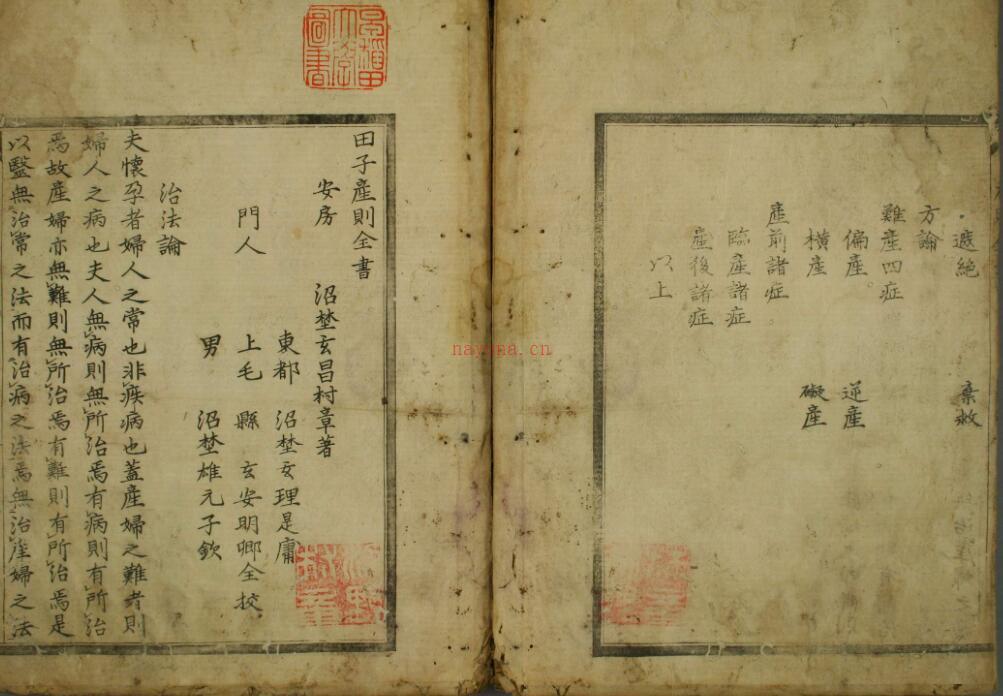 遞絶 棄救
方論
難産四症
偏産 逆産
横産 礙産
産前諸症
臨産諸症
産後諸症
以上
田子産則全書
安房 沼埜玄昌村章著
東都 沼埜玄理是庸
門人 上毛 縣 玄安明卿全挍
男 沼埜雄元子欽
治法論
夫懷孕者婦人之常也非疾病也蓋産婦之難者則
婦人之病也夫人無病則無所治焉有病則有所治
焉故産婦亦無難則無所治焉有難則有所治焉是
以毉無治常之法而有治病之法焉無治産婦之法
nayona.cn
圖書